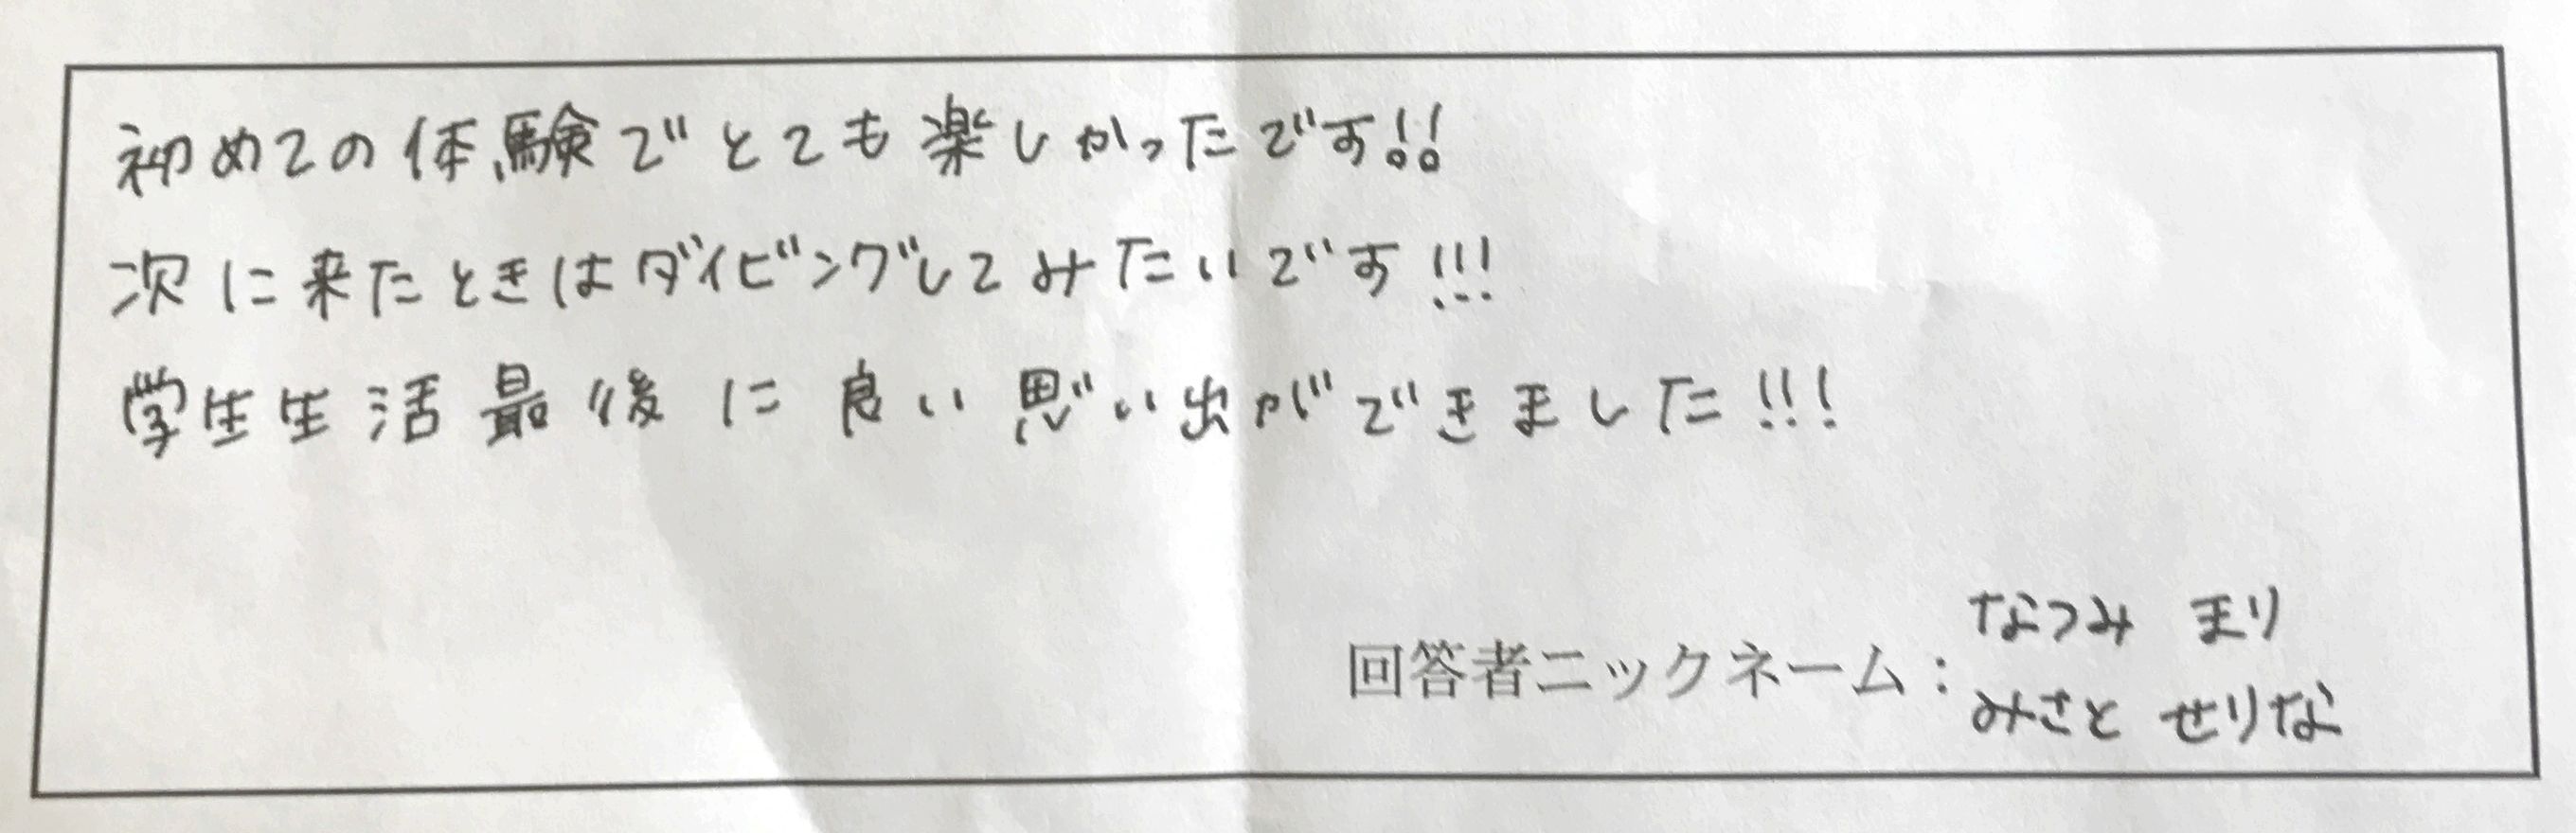 初めての体験でとても楽しかったです!!
次に来たときはダイビングしてみたいです!!!
学生生活最後に良い思い出ができました!!!
なつみ まり
回答者ニックネーム：
みさと せりな